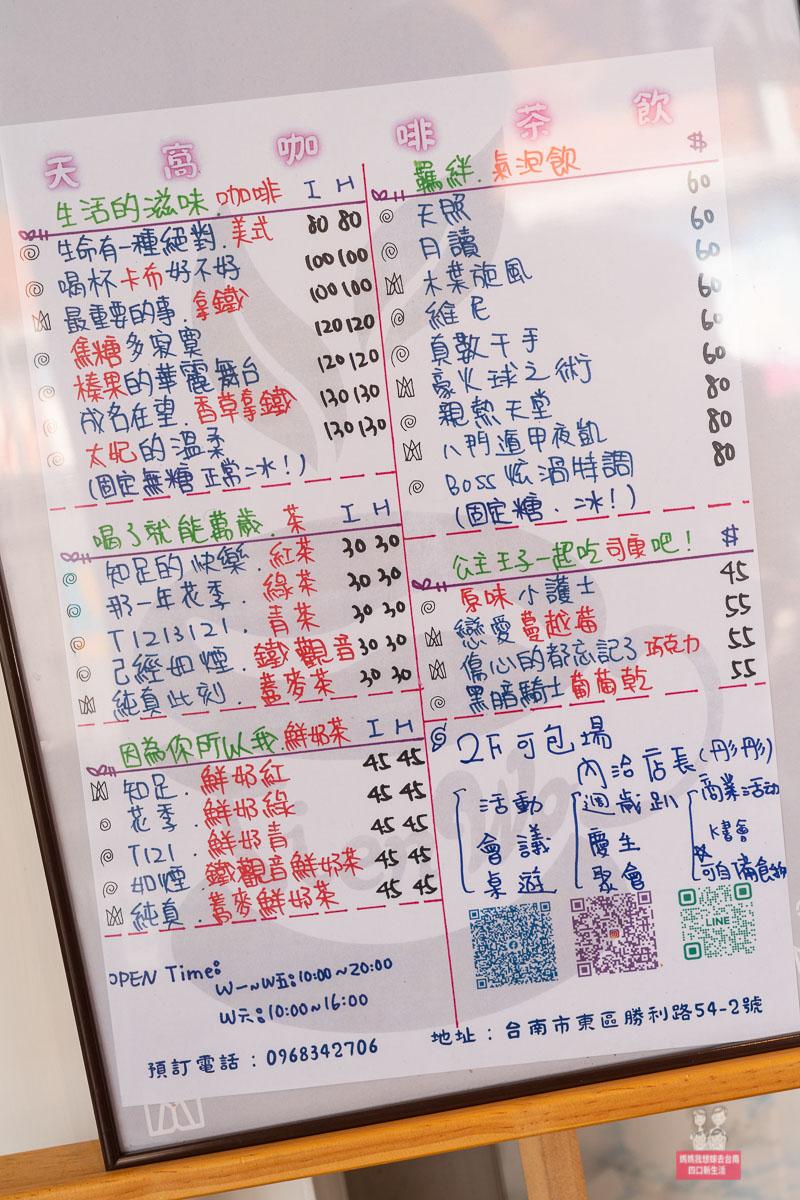 天窩咖啡茶飲
生活的滋味.咖啡 I H
生命有一種絕對.美式 80 80
喝杯卡布好不好 100 100
最重要的事.拿鐵 100 100
焦糖多寂寞 120 120
榛果的華麗舞台 120 120
成名在望.香草拿鐵 130 130
太妃的溫柔 130 130
(固定無糖 正常冰!)
喝了就能萬歲.茶 I H
知足的快樂.紅茶 30 30
那一年花季.綠茶 30 30
T1213121.青茶 30 30
已經如煙.鐵觀音 30 30
純真此刻.蕎麥茶 30 30
因為你所以我.鮮奶茶 I H
知足.鮮奶紅 45 45
花季.鮮奶綠 45 45
T121.鮮奶青 45 45
如煙.鐵觀音鮮奶茶 45 45
純真.蕎麥鮮奶茶 45 45
OPEN Time:
W一~W五:10:00~20:00
W六:10:00~16:00
預訂電話:0968342706
羈絆.氣泡飲 $
天照 60
月讀 60
木葉旋風 60
維尼 60
真數千手 60
豪火球之術 60
親熱天堂 80
八門遁甲夜凱 80
Boss炫渦特調 80
(固定糖.冰!)
公主王子一起吃司康吧! $
原味小護士 45
戀愛蔓越莓 55
傷心的都忘記了巧克力 55
黑暗騎士葡萄乾 55
2F可包場
內洽店長(彤彤)
活動 週歲趴 商業活動
會議 慶生 K書會
桌遊 聚會 ※可自備食物
LINE
地址:台南市東區勝利路54-2號
媽媽我想嫁去台南
四口新生活